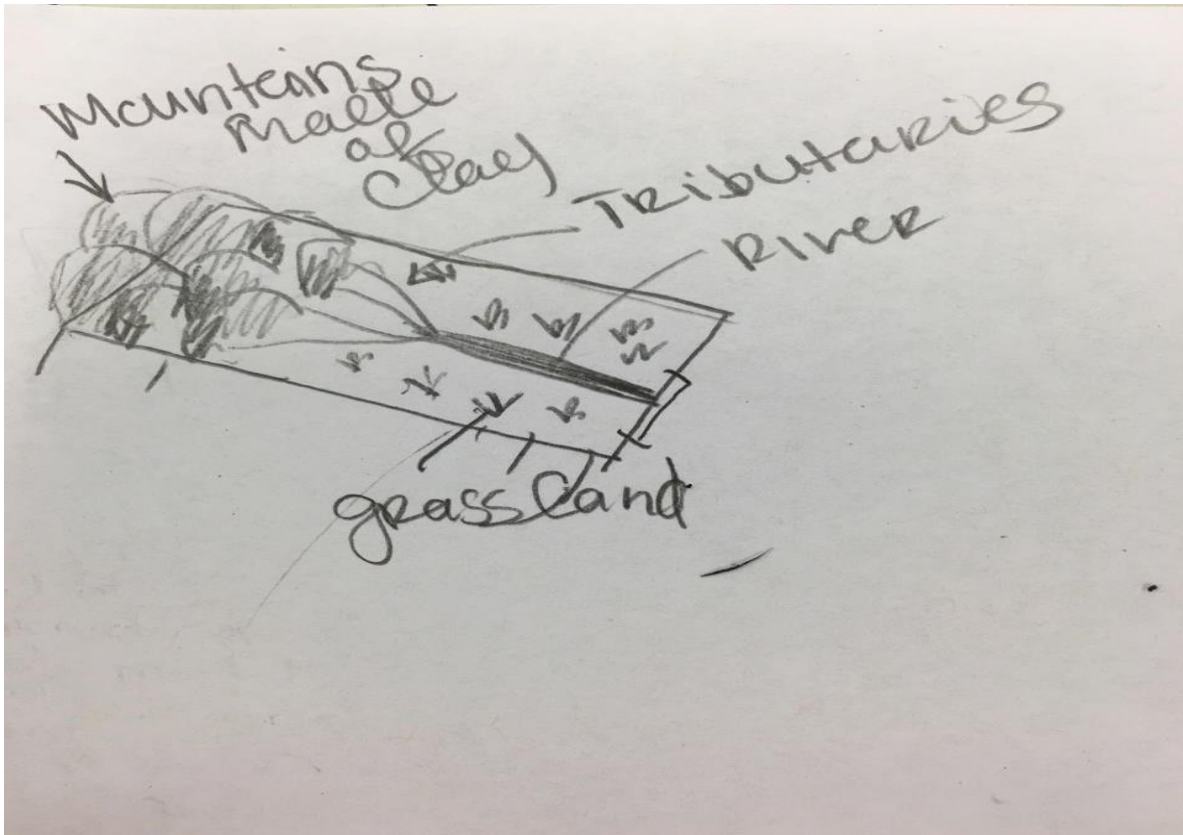 Mountains
made
of
Clay
Tributaries
River
grassland